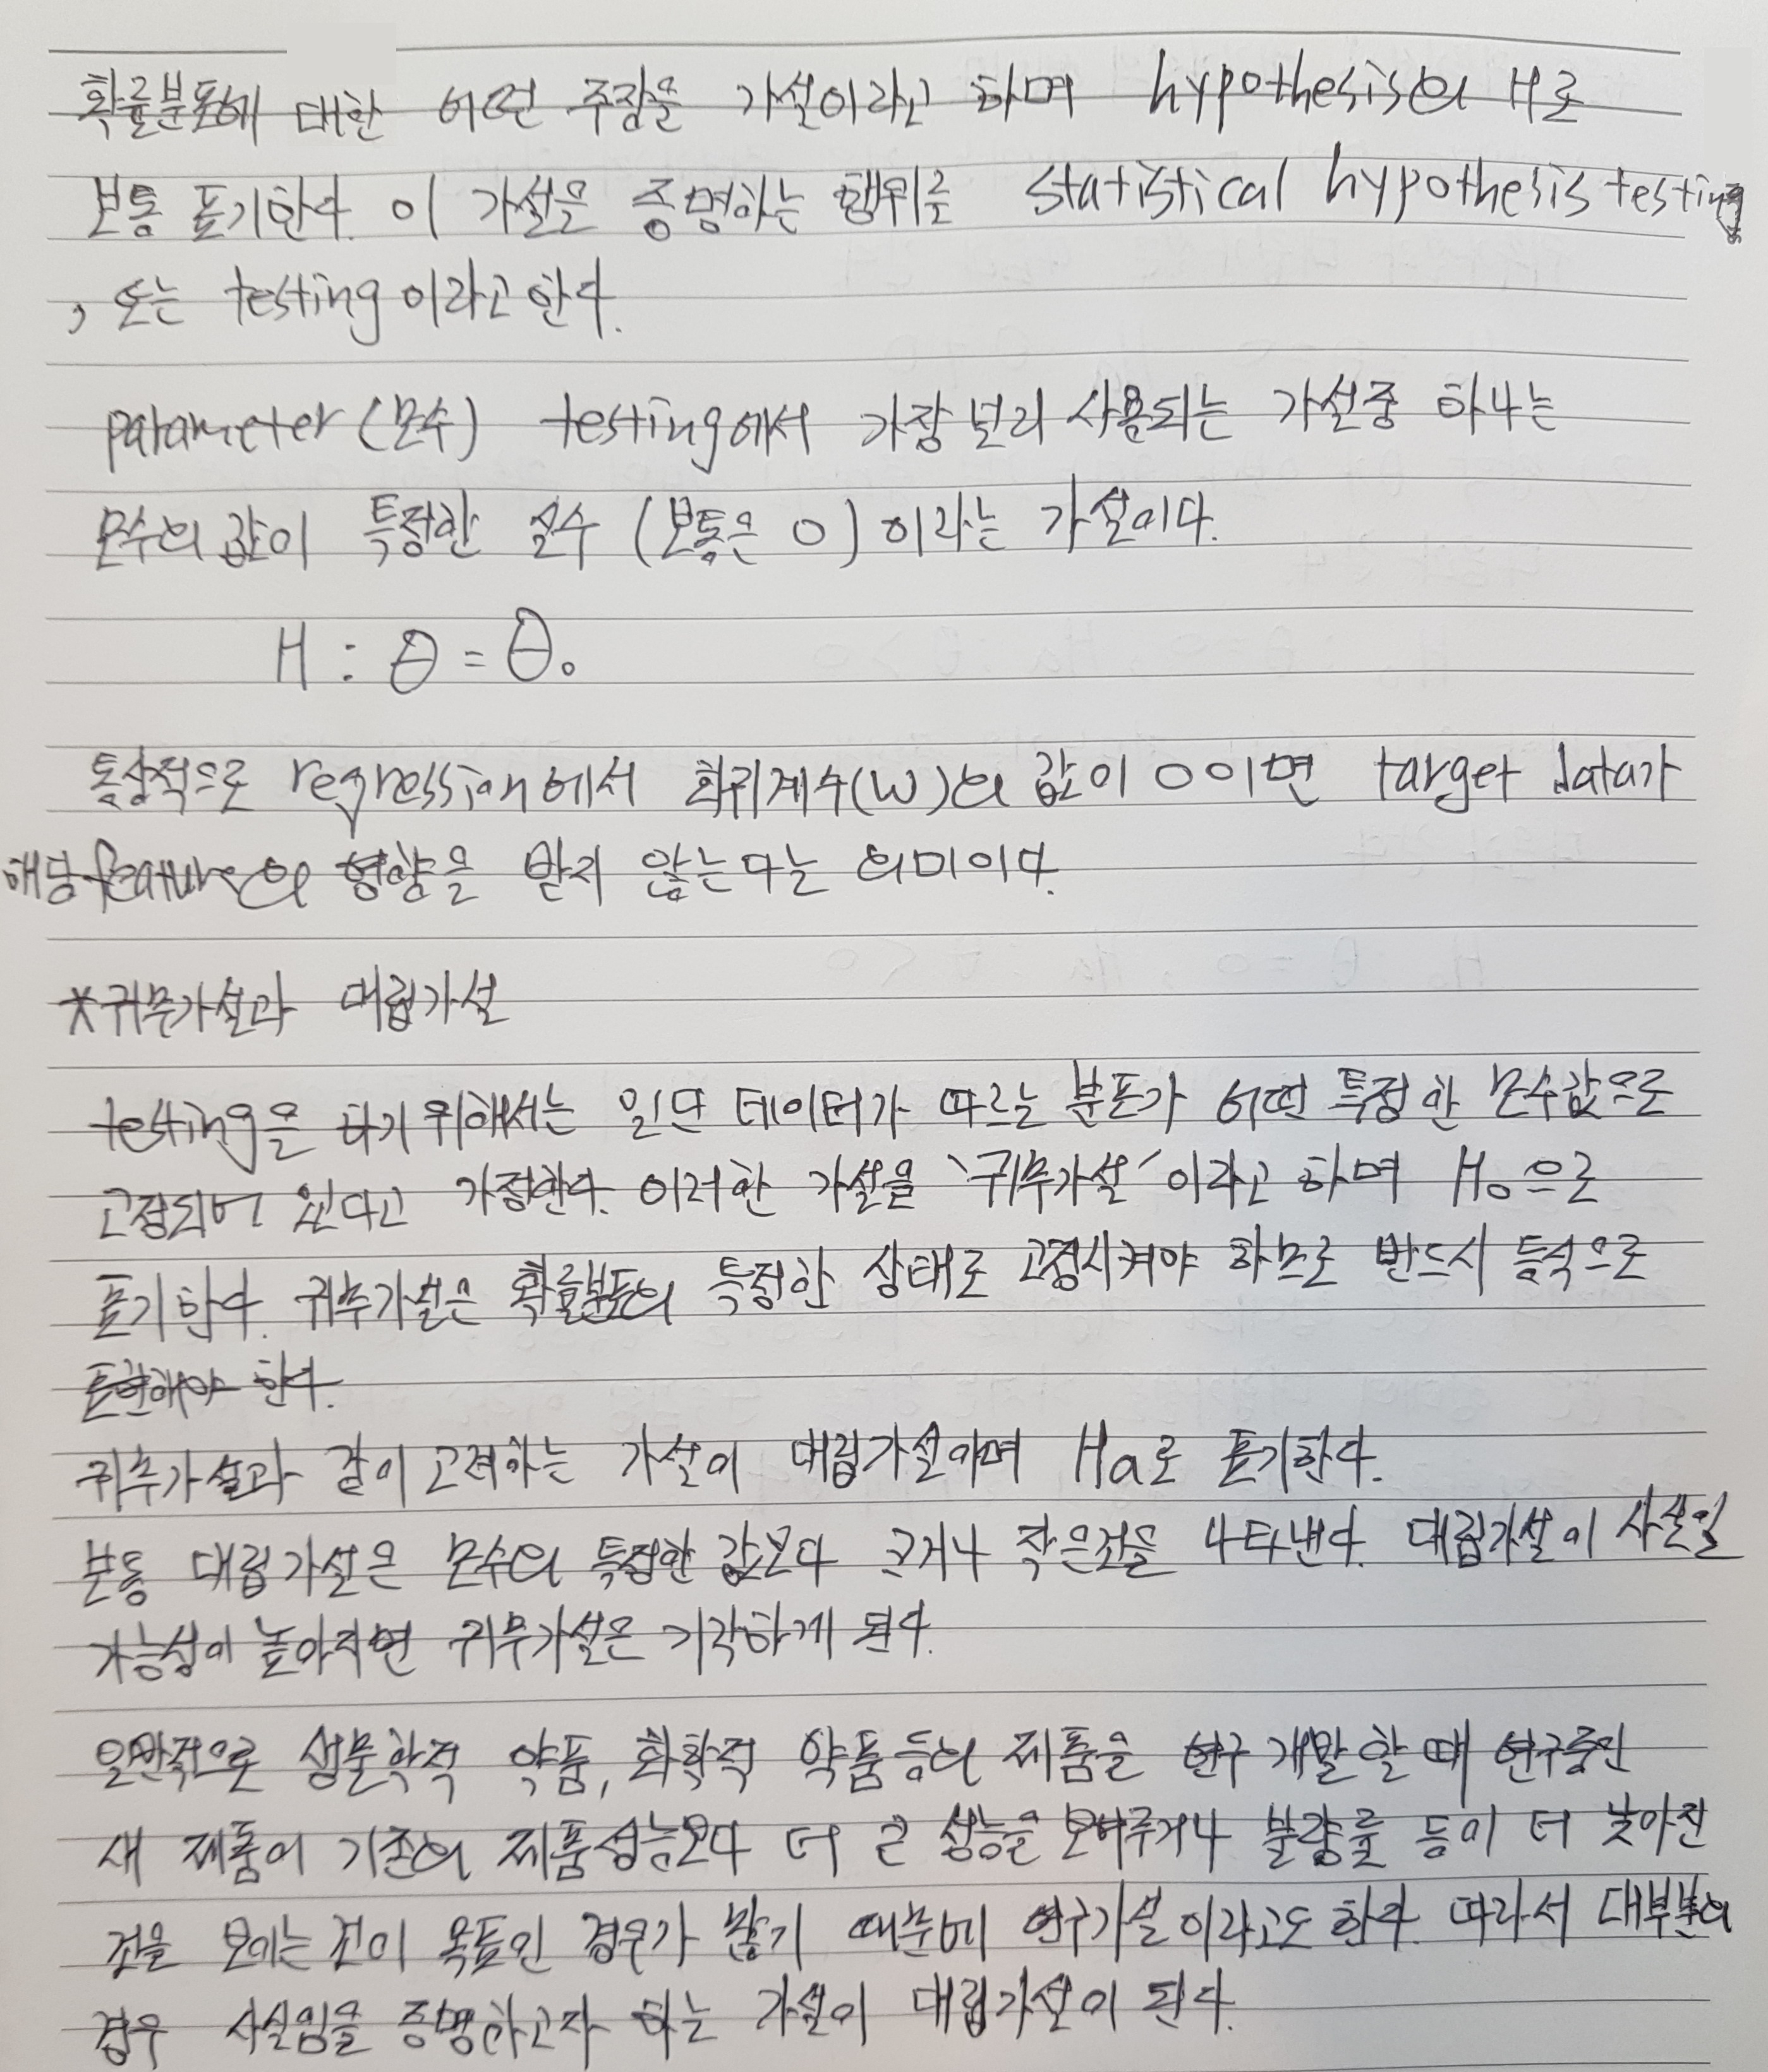 확률분포에 대한 어떤 주장을 가설이라고 하며 hypothesis의 H로
보통 표기한다. 이 가설을 증명하는 행위를 statistical hypothesis testing
, 또는 testing이라고 한다.
parameter (모수) testing에서 가장 널리 사용되는 가설중 하나는
모수의 값이 특정한 실수 (보통은 0) 이라는 가설이다.
H : θ = θ₀
통상적으로 regression에서 회귀계수(W)의 값이 0이면 target data가
해당 feature의 형향을 받지 않는다는 의미이다.
*귀무가설과 대립가설
testing을 하기 위해서는 일단 데이터가 따르는 분포가 어떤 특정한 모수값으로
고정되어 있다고 가정한다. 이러한 가설을 '귀무가설'이라고 하며 H₀으로
표기한다. 귀무가설은 확률분포의 특정한 상태로 고정시켜야 하므로 반드시 등식으로
표현해야 한다.
귀무가설과 같이 고려하는 가설이 대립가설이며 Ha로 표기한다.
보통 대립가설은 모수의 특정한 값보다 크거나 작은것을 나타낸다. 대립가설이 사실일
가능성이 높아지면 귀무가설은 기각하게 된다.
일반적으로 생물학적 약품, 화학적 약품등의 제품을 연구 개발할 때 연구중인
새 제품이 기존의 제품성능보다 더 큰 성능을 보여주거나 불량률 등이 더 낮아진
것을 보이는 것이 목표인 경우가 많기 때문에 연구가설이라고도 한다. 따라서 대부분의
경우 사실임을 증명하고자 하는 가설이 대립가설이 된다.